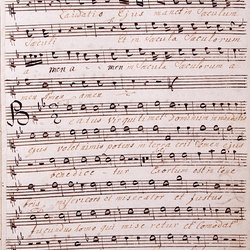 Laudatio Ejus manet in Saeculum
Saeculi Et in Saecula Saeculorum
a men a men in Saecula Saeculorum a
men a men
Beatus Vir qui timet Dominum in mandatis
ejus volet nimis potens in terra erit Semen ejus
benedice tur Exortum est in tene
bris misericors et miserator et justus
jucundus homo qui mise retur et Comodat